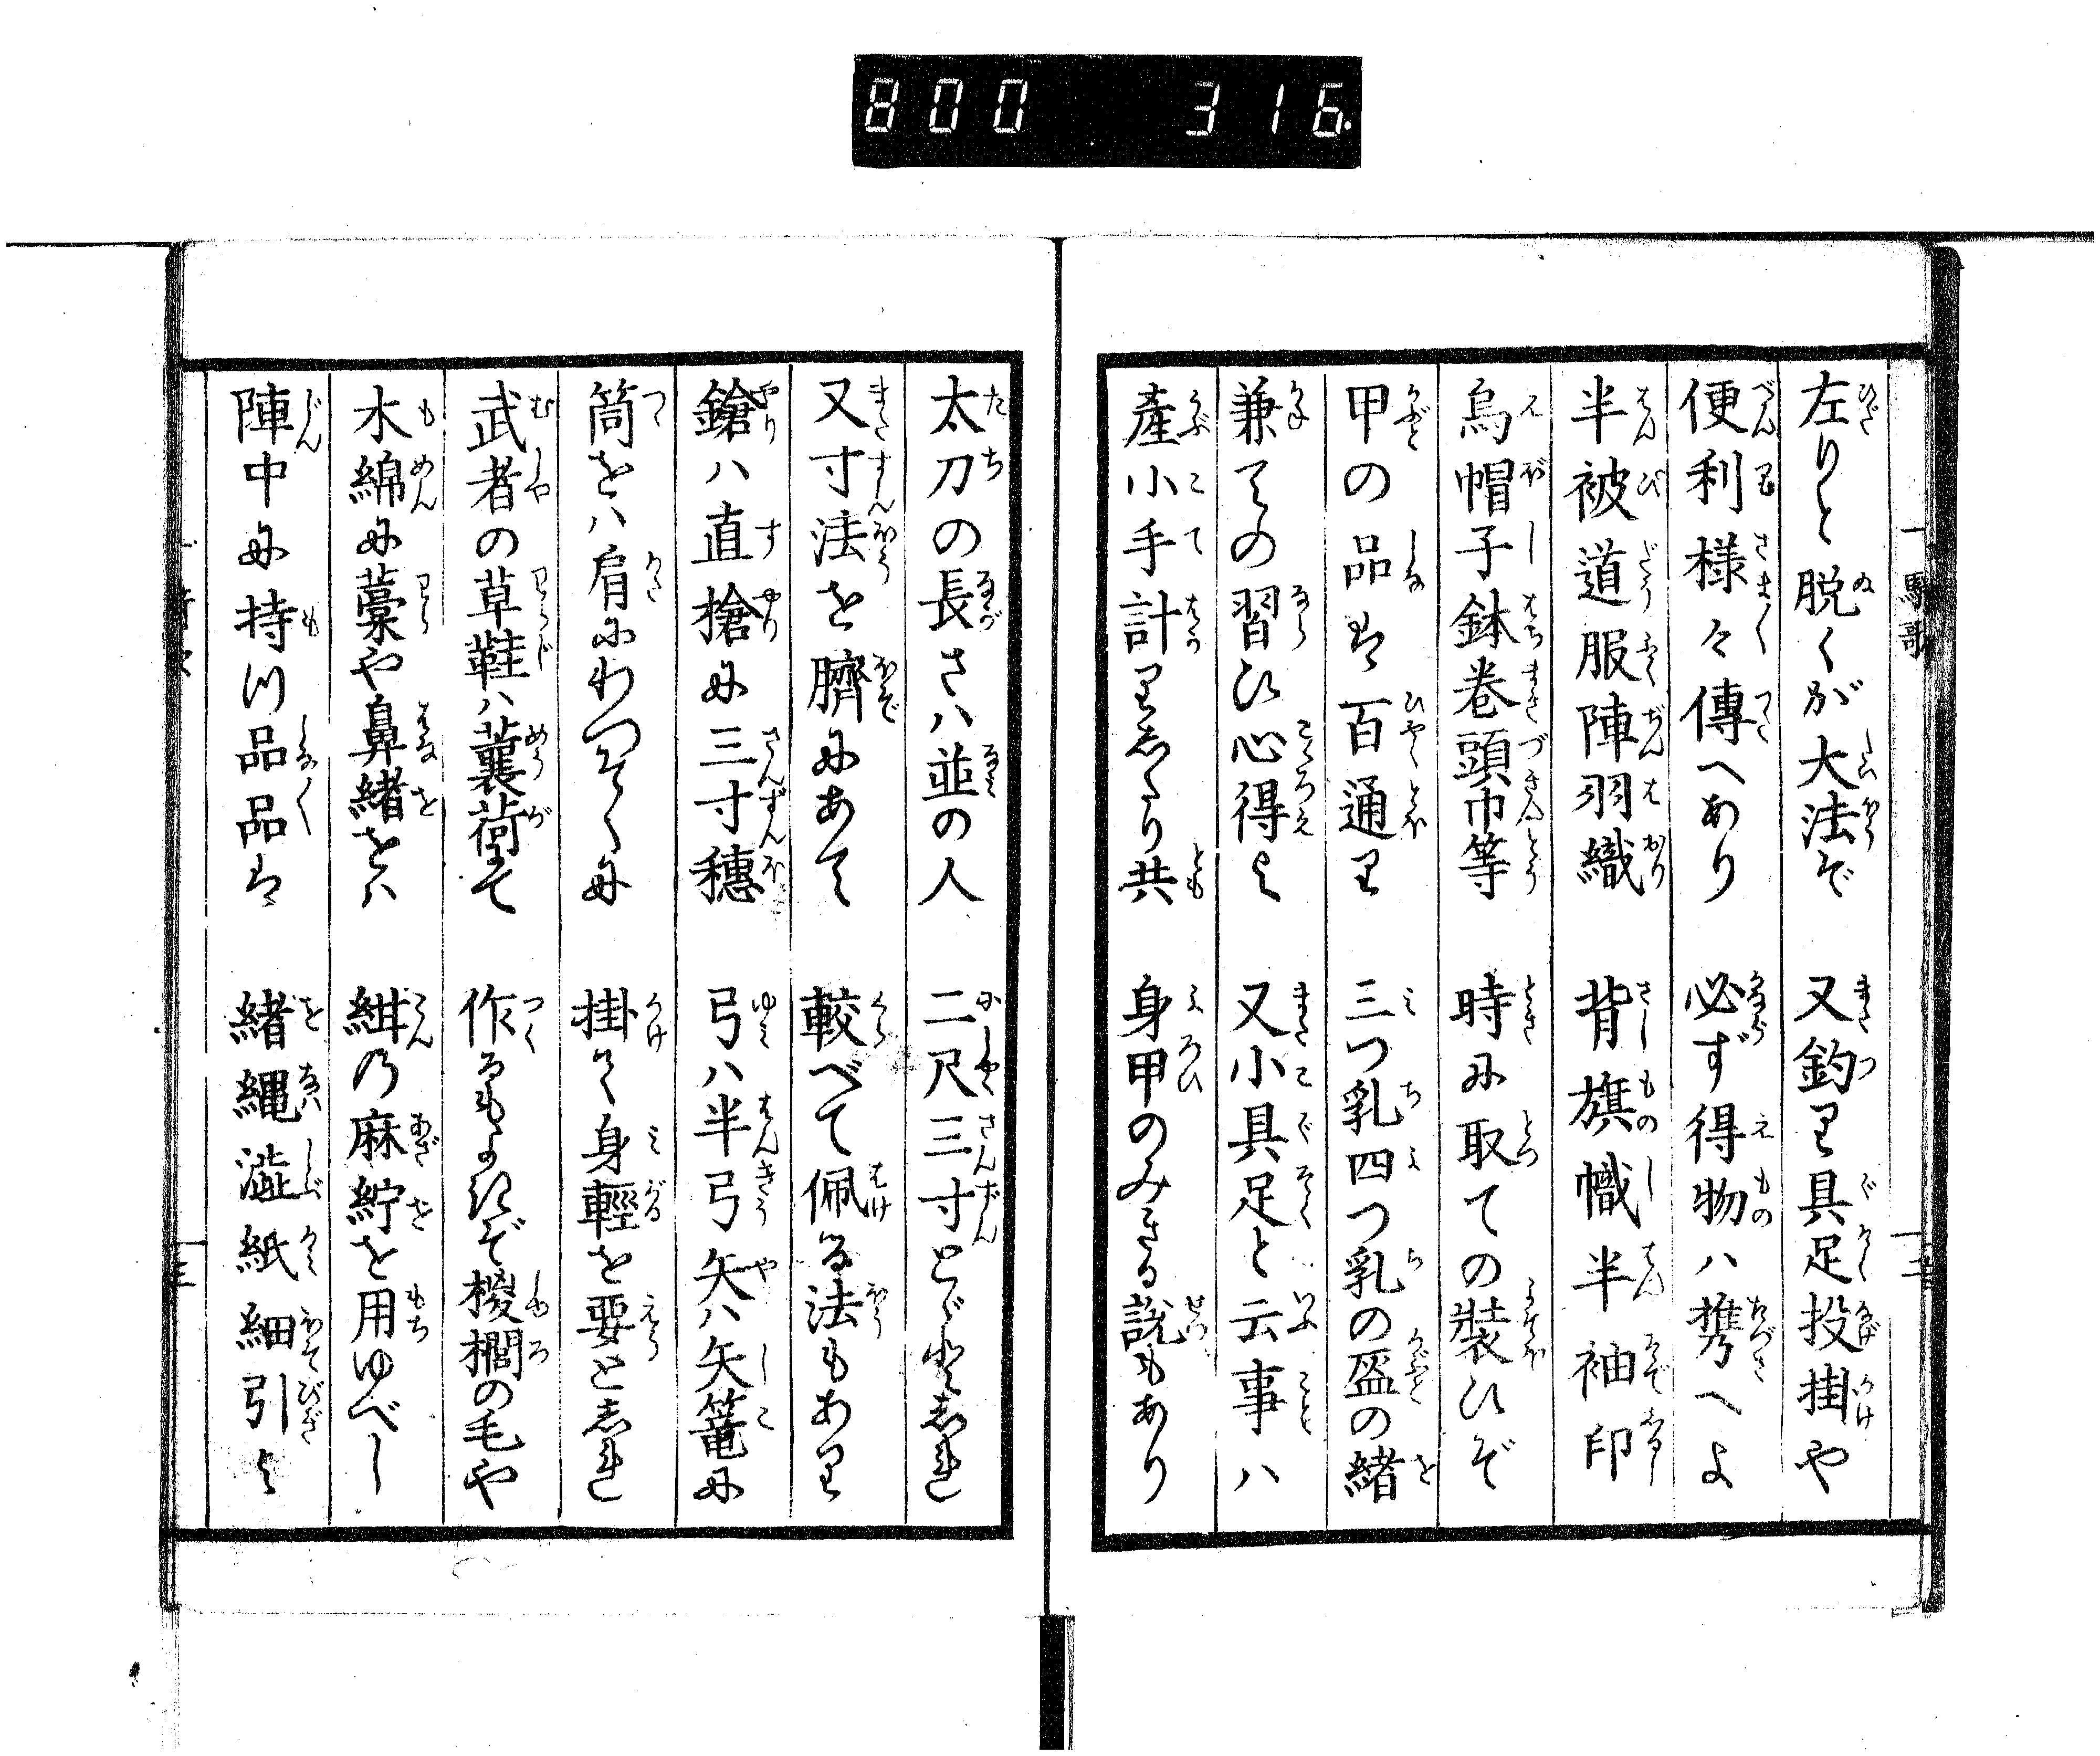 800 316.
一騎歌
左りと脱くが大法ぞ 又釣り具足投掛や
便利様々傳へあり 必ず得物ハ携へよ
半被道服陣羽織 背旗幟半袖印
烏帽子鉢巻頭巾等 時に取ての装ひぞ
甲の品は百通り 三つ乳四つ乳の盔の緒
兼ての習ひ心得よ 又小具足と云事ハ
産小手計りあたり共 身甲のみきる説もあり
太刀の長さハ並の人 二尺三寸とぞ志れ
又寸法を臍にあて 較べて佩る法もあり
鎗ハ直槍に三寸穂 弓ハ半弓矢ハ矢篭に
筒をハ肩にわつそくに 掛て身輕を要と志れ
武者の草鞋ハ蘘荷にて 作るもよきぞ椶櫚の毛や
木綿に藁や鼻緒をハ 紺の麻紵を用ゆべし
陣中に持つ品品は 緒縄澁紙細引よ